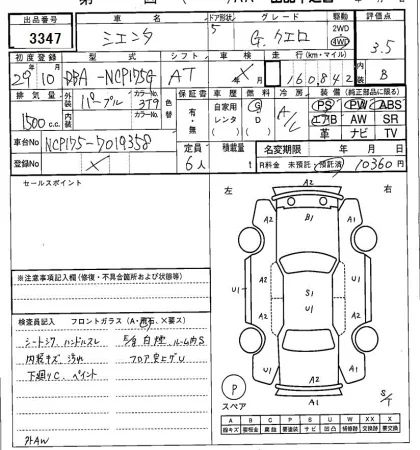 出品番号 車名 ドア形状 グレード 駆動 評価点
3347 シエンタ 5 G クエロ 2WD 4WD 3.5
初度登録 型式 シフト 車検 走行(km・マイル) 内装
29年10月 DBA-NCP175G AT × 160,842 B
排気量 外装 カラーNo. 色替 保証書 車歴 燃料 冷房 装備(純正部品に限る)
1500c.c. パープル 3T9 有・無 自家用 レンタ G D A/C PS PW ABS
エアB AW SR
革 ナビ TV
車台No NCP175-7019358 定員 6人 積載量 t 名変期限 年 月 日
登録No × R料金 未預託 預託済 10360円
セールスポイント
左 右
A2
B1
A1 A2
U1 S1 U1
A2 A1
A2
A1
※注意事項記入欄(修復・不具合箇所および状態等)
検査員記入 フロントガラス(A・飛石、X要ス)
シートシワ、ハンドルスレ
内装キズ 汚れ フロア突上ゲU
下廻りC、ペイント
外AW
P
スペア
A B C P S U W X XX
線キズ 腐蝕 要塗装 サビ 凹凸 補修跡 交換跡 要交換